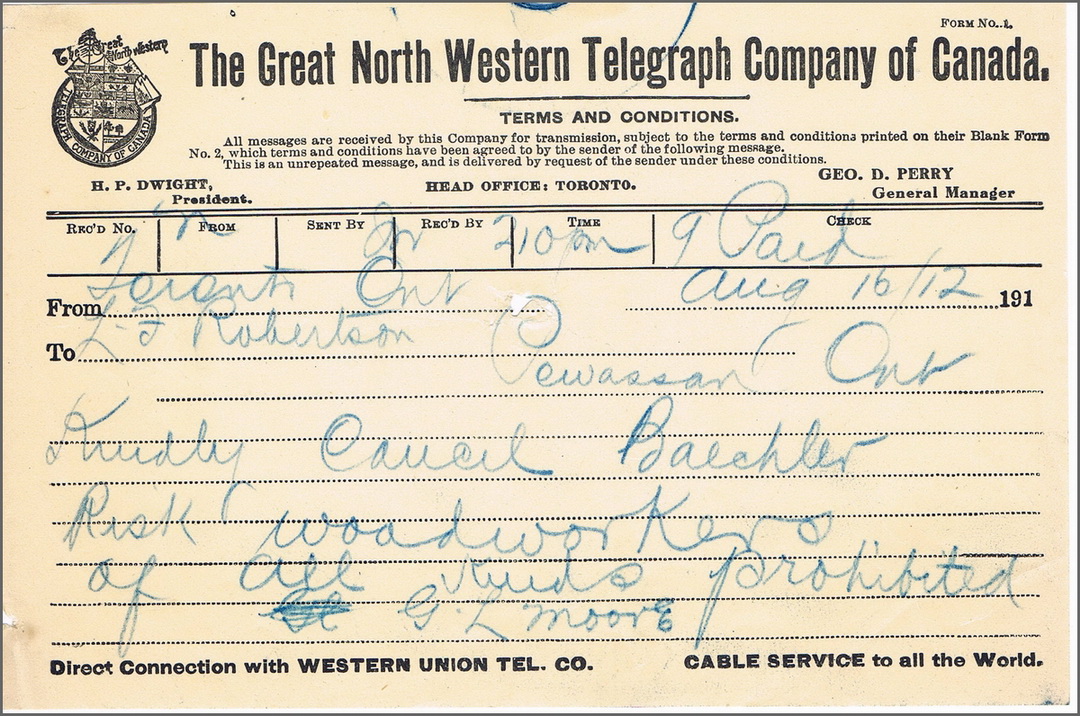 FORM No..1.
The Great North Western
TELEGRAPH COMPANY OF CANADA
The Great North Western Telegraph Company of Canada.
TERMS AND CONDITIONS.
All messages are received by this Company for transmission, subject to the terms and conditions printed on their Blank Form
No. 2, which terms and conditions have been agreed to by the sender of the following message.
This is an unrepeated message, and is delivered by request of the sender under these conditions.
H. P. DWIGHT,
President.
HEAD OFFICE: TORONTO.
GEO. D. PERRY
General Manager
REC'D No. FROM SENT BY REC'D BY TIME CHECK
210pm 9 Paid
From Toronto Ont Aug 16/12 191
To L F Robertson
Pewassan Ont
Kindly Cancel Baechler
Risk woodworkers
of all kinds prohibited
G L Moore
Direct Connection with WESTERN UNION TEL. CO. CABLE SERVICE to all the World.